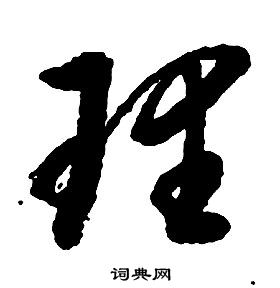 理
词典网